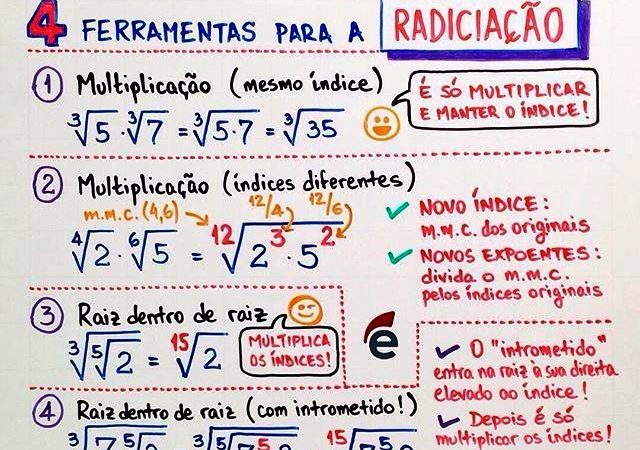 4 FERRAMENTAS PARA A RADICIAÇÃO
1 Multiplicação (mesmo índice)
∛5 · ∛7 = ∛5·7 = ∛35
É SÓ MULTIPLICAR
E MANTER O ÍNDICE!
2 Multiplicação (índices diferentes)
m.m.c. (4,6) 12/4 12/6
⁴√2 · ⁶√5 = ¹²√2³ · 5²
NOVO ÍNDICE:
m.m.c. dos originais
NOVOS EXPOENTES:
divida o m.m.c.
pelos índices originais
3 Raiz dentro de raiz
∛⁵√2 = ¹⁵√2
MULTIPLICA
OS ÍNDICES!
e
4 Raiz dentro de raiz (com intrometido!)
O "intrometido"
entra na raiz à sua direita
elevado ao índice!
Depois é só
multiplicar os índices!